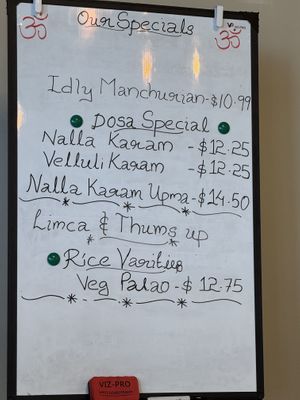 ॐ Our Specials ॐ
Idly Manchurian-$10.99
Dosa Special
Nalla Karam - $12.25
Velluli Karam - $12.25
Nalla Karam Upma-$14.50
Limca & Thums up
Rice Varities
Veg Palao - $ 12.75
VIZ-PRO